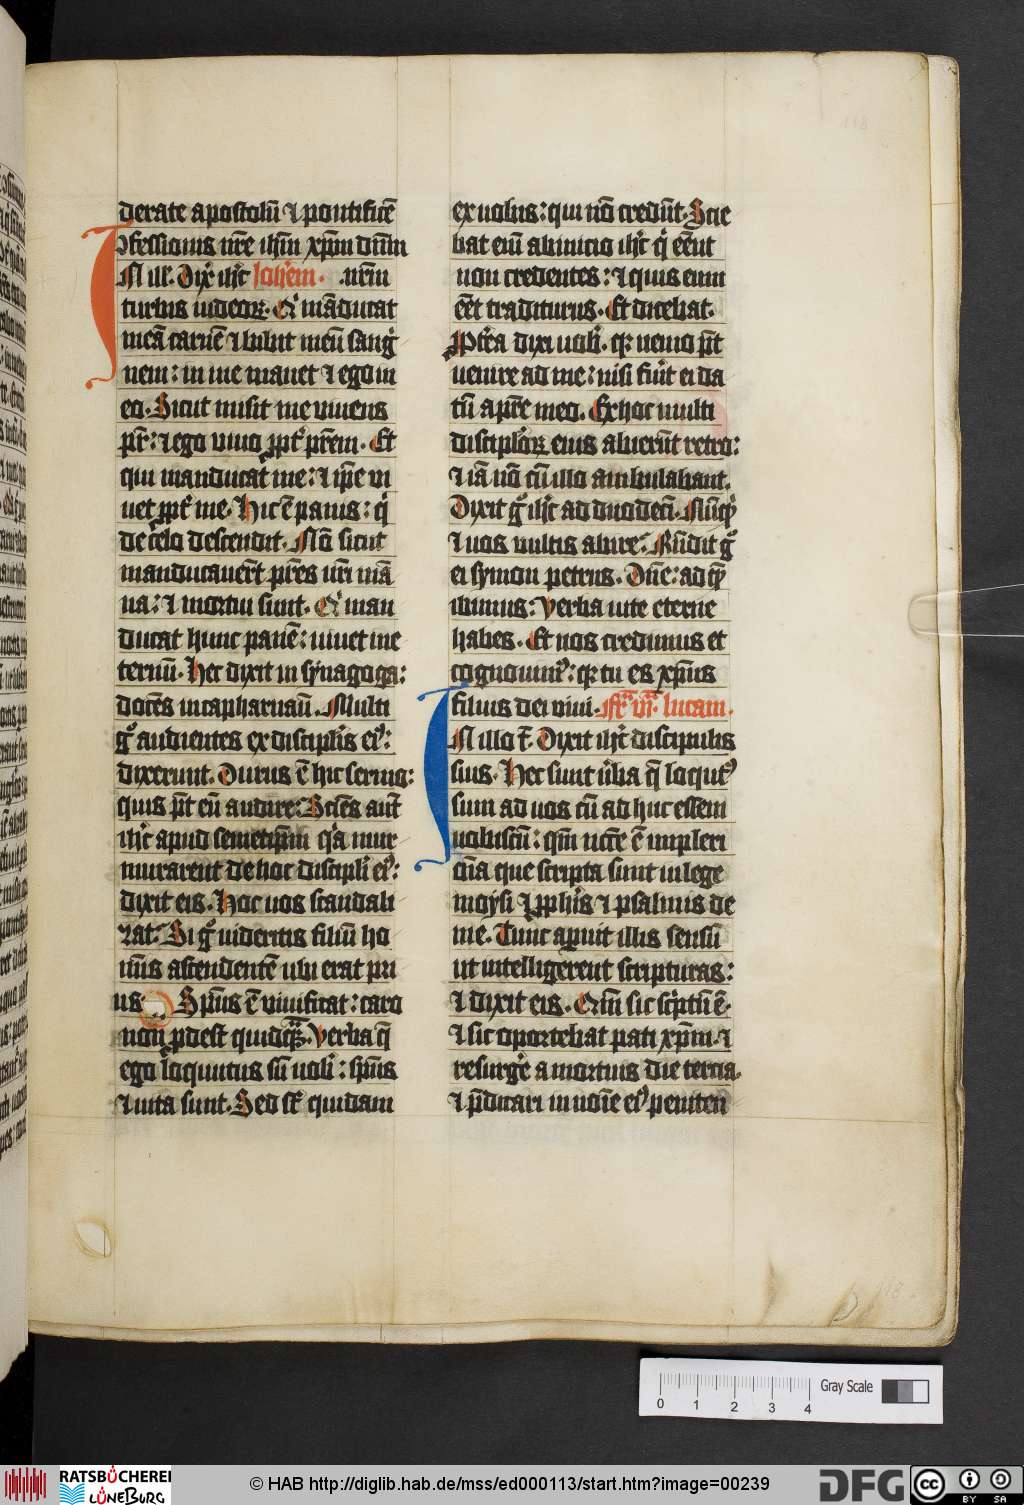 derate apostolū ⁊ pontificē
ꝯfessionis nr̄e ih̄m xp̄m dn̄m
IN ill̓. Dix̓ ih̓c Ioh̓em. .nr̄m
turbis iudeoꝝ. Qͥ māducat
meā carnē ⁊ bibit meū sangͥ
nem: in me manet ⁊ ego in
eo. Sicut misit me viuens
pr̄: ⁊ ego viuo ꝓpt̓ pr̄em. Et
qui manducat me: ⁊ ip̄e vi
uet ꝓpt̓ me. Hic ē panis: qͥ
de celo descendit. Nō sicut
manducauer̄t pr̄es vr̄i mā
na: ⁊ mortui sunt. Qͥ man
ducat hunc panē: viuet ine
ternū. Hec dixit in synagoga:
docēs in capharnaū. Multi
gͦ audientes ex discipl̓is eiꝰ:
dixerunt. Durus ē hic sermo:
quis p̄t eū audire? Sciēs aut̄
ih̓c apud semetip̄m qꝛ̓a mur
murarent de hoc discipl̓i eiꝰ:
dixit eis. Hoc uos scandali
ꝛat? Si gͦ videritis filiū ho
minis ascendentē ubi erat pri
us. Sp̄us ē viuificat: caro
non ꝓdest quidqᷓꝫ. Verba q̄
ego loquutus sū uob̓: sp̄us
⁊ uita sunt. Sed st̄ quidam
ex uobis: qui nō credūt. Scie
bat eī ab inicio ih̓c qͥ eēnt
non credentes: ⁊ quis eum
eēt traditurus. Et dicebat.
Ꝓpt̓ea dixi uob̓. qꝛ nemo p̄t
uenire ad me: nisi fu̓it ei da
tū a pr̄e meo. Ex hoc multi
discipl̓oꝝ eius abierūt retro:
⁊ iā nō cū illo ambulabant.
Dixit gͦ ih̓c ad duodecī. Nūqͥd
⁊ uos vultis abire? Rn̄dit gͦ
ei symon petrus. Dn̄e: ad qͤ
ibimus: Verba uite eterne
habes. Et nos credimus et
cognouimꝰ: qꝛ tu es xp̄us
filius dei viui. Fr̄ vj̄. lucam.
IN illo t̄. Dixit ih̓c discipulis
suis. Hec sunt ūba q̄ locutꝰ
sum ad uos cū ad huc essem
uobiscū: qm̄ nc̄ce ē impleri
oīa que scripta sunt in lege
moysi ⁊ ꝓphīs ⁊ psalmis de
me. Tunc aꝑuit illis sensū
ut intelligerent scripturas:
⁊ dixit eis. Qm̄ sic sc̓ptū ē.
⁊ sic oportebat pati xp̄m. ⁊
resurg̓e a mortuis die tercia.
⁊ p̄dicari in noīe eiꝰ peniten
118
118
0 1 2 3 4
Gray Scale
RATSBÜCHEREI
LÜNEBURG
© HAB http://diglib.hab.de/mss/ed000113/start.htm?image=00239
DFG
cc BY SA